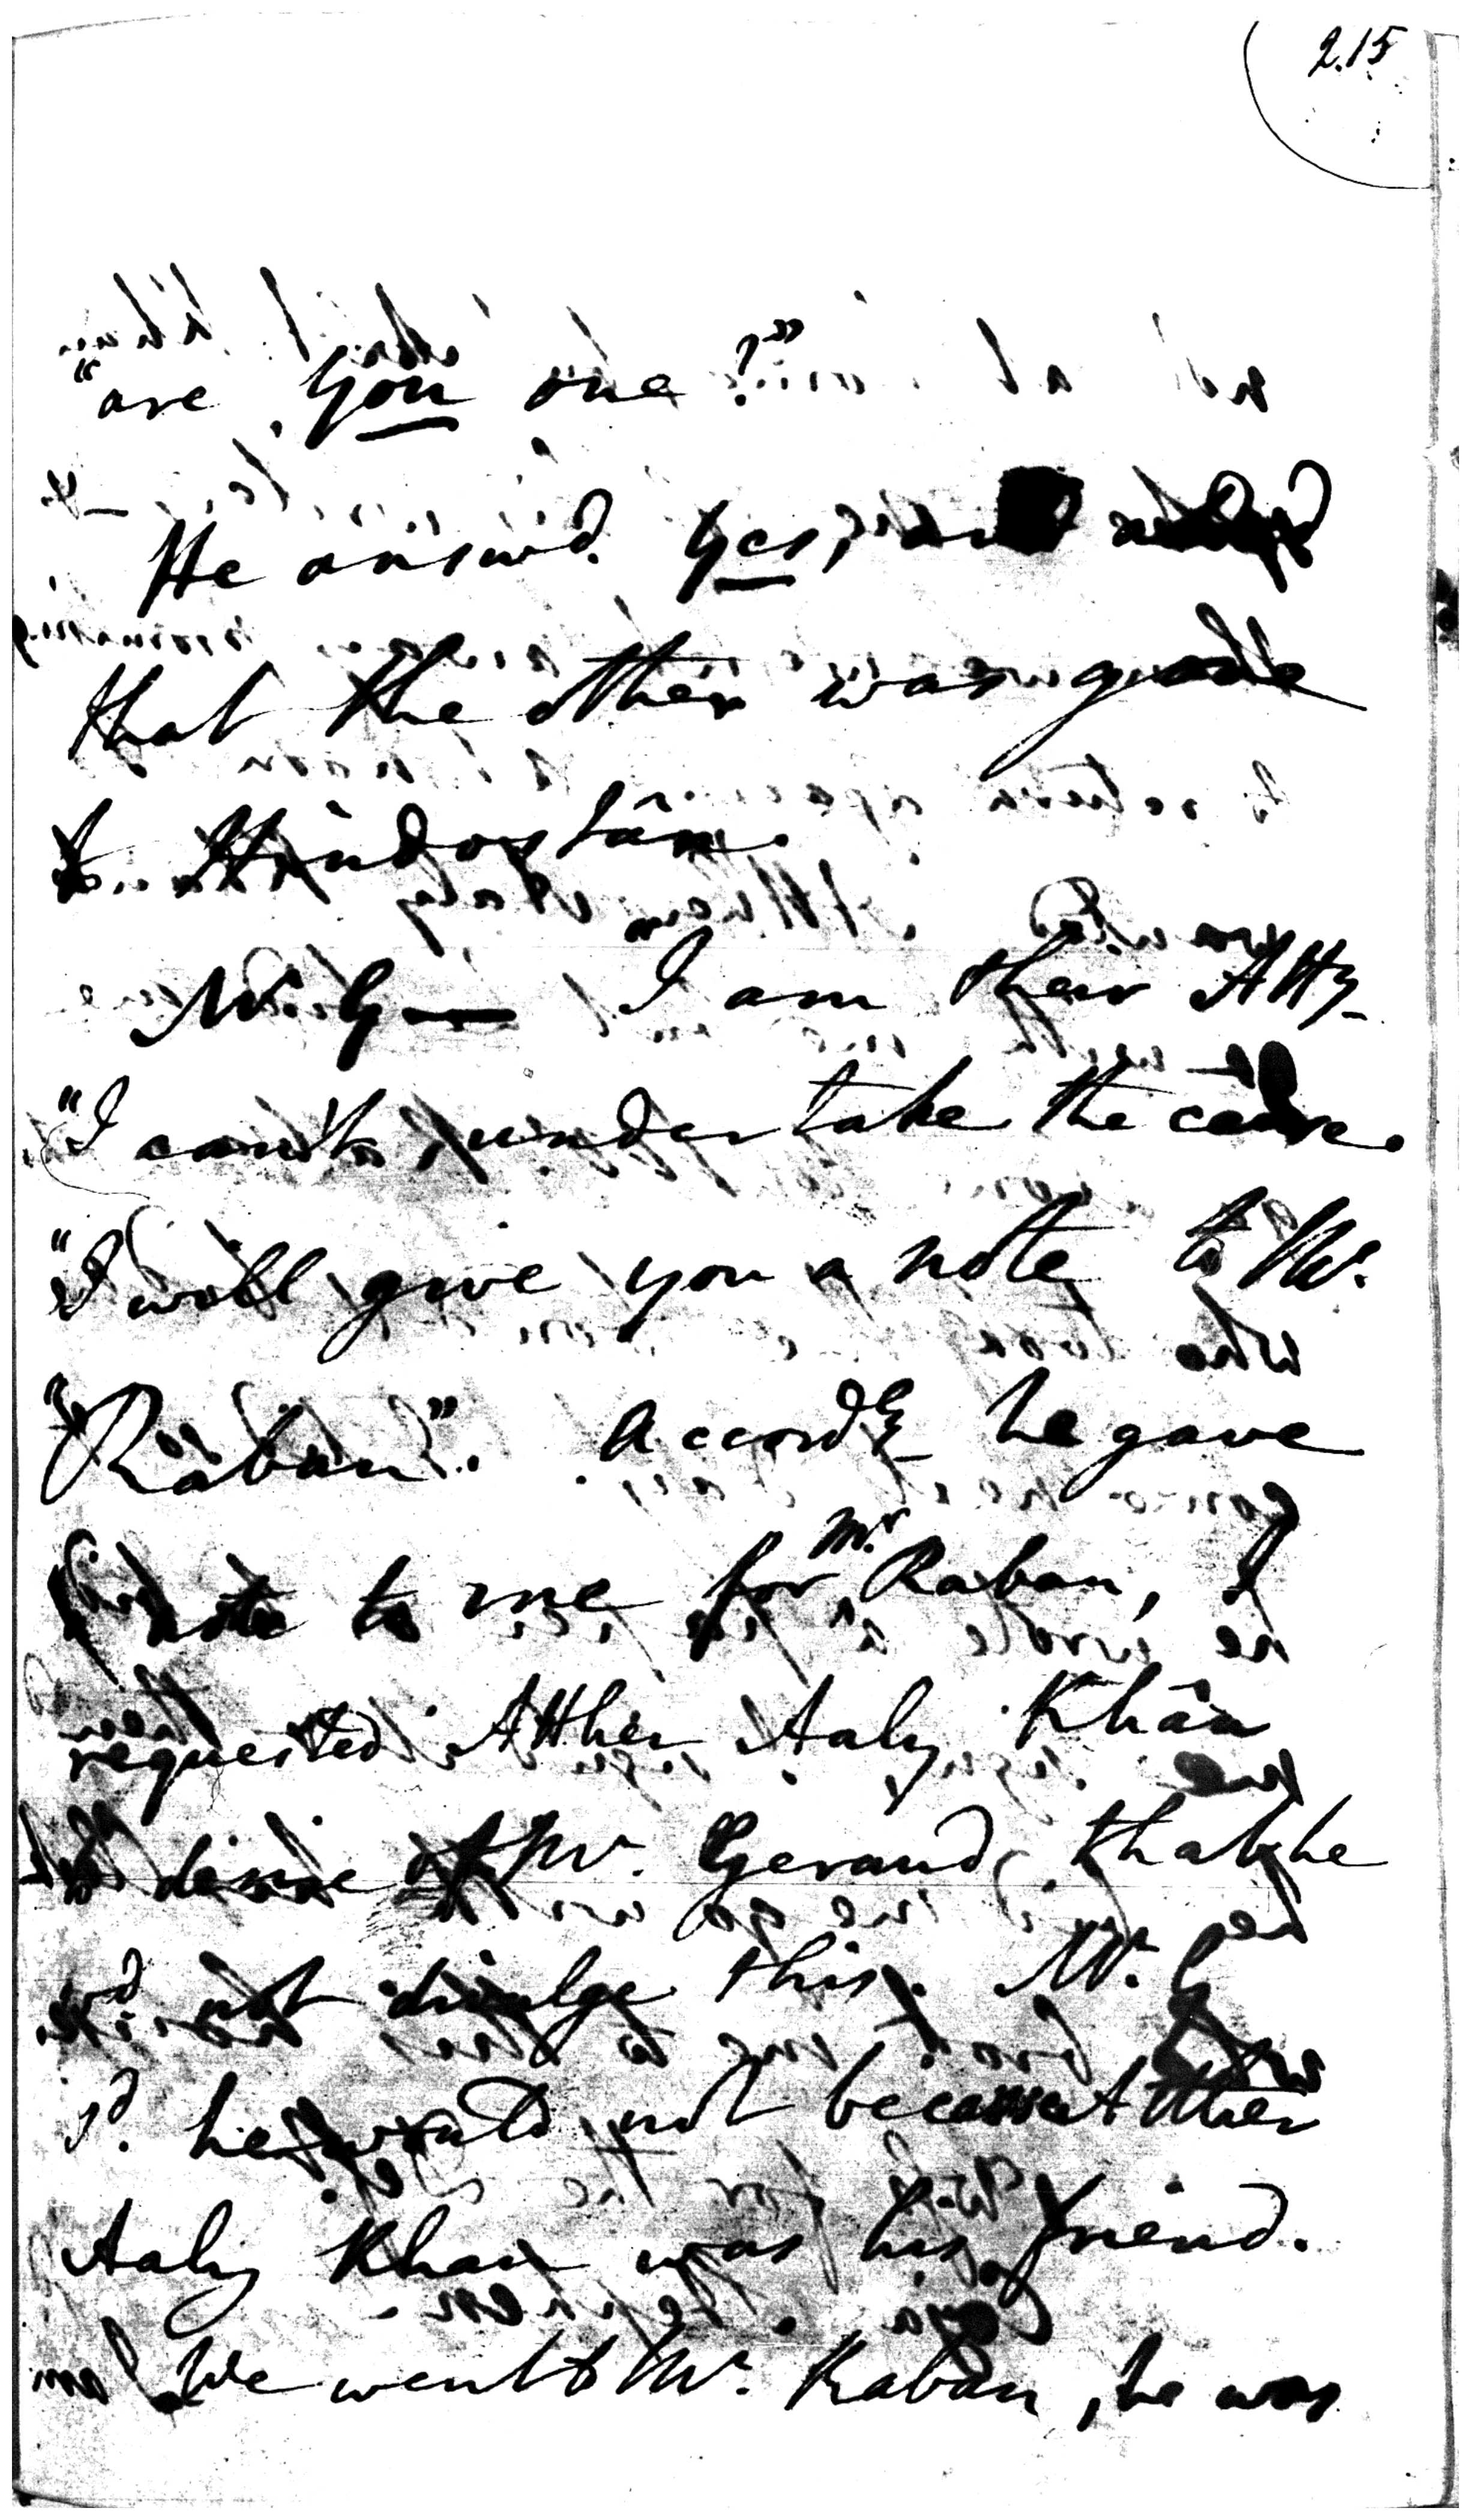 215
"are you one?"
He answd. yes, and
that the other was gone
to Hindostân.
Mr. G— I am their Atty
"I can't undertake the cause.
"I will give you a note to Mr.
"Raban". Accordy he gave
a note to me for Mr Raban, I
requested Atther Aaly Khân
to desire of Mr. Geraud, that he
wd. not divulge this. Mr. G
sd. he would not because Atther
Aaly Khan was his friend.
We went to Mr. Raban, he was